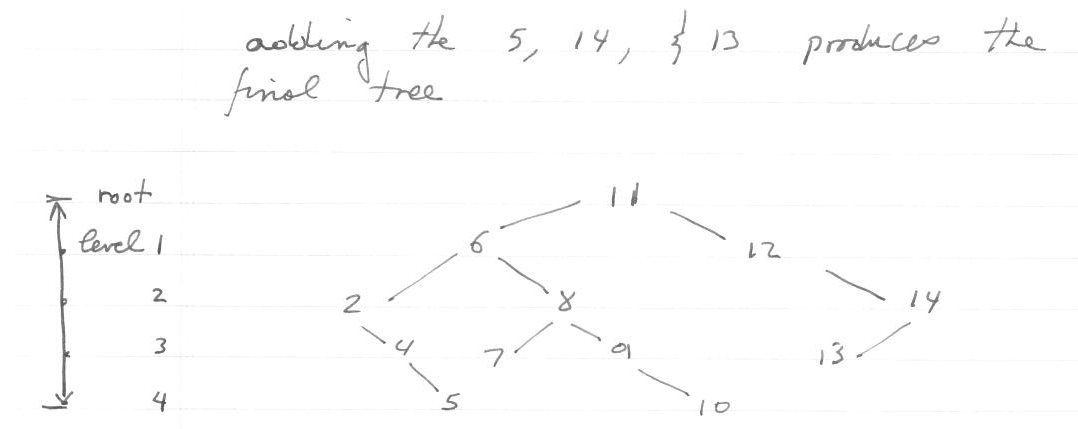 adding the 5, 14, & 13 produces the
final tree
root 11
level 1 6 12
2 2 8 14
3 4 7 9 13
4 5 10